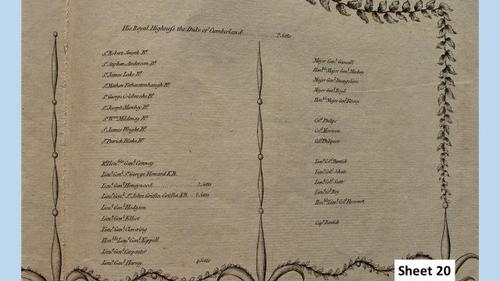 His Royal Highness the Duke of Cumberland 2 Setts
Sr. Robert Smyth Bt.
Sr. Stephen Anderson Bt.
Sr. James Lake Bt.
Sr. Mathew Fetherstonhaugh Bt.
Sr. George Colebrooke Bt.
Sr. Joseph Mawbey Bt.
Sr. Wm. Mildmay Bt.
Sr. James Wright Bt.
Sr. Patrick Blake Bt.
Rt. Honble. Genl. Conway
Lieut. Genl. Sr. George Howard K.B.
Lieut. Genl. Honywood 2 Setts
Lieut. Genl. Sr. John Griffin Griffin K.B. Setts
Lieut. Genl. Hodgson
Lieut. Genl. Elliot
Lieut. Genl. Clavering
Honble. Lieut. Genl. Keppell
Lieut. Genl. Carpenter
Lieut. Genl. Setts
Major Genl.
Honble. Major Genl. Mackay
Major Genl.
Major Genl. Boyd
Honble. Major Genl.
Coll. Philips
Coll. Morrison
Coll.
Lieut. Coll.
Lieut. Coll.
Lieut. Coll.
Lieut. Coll. Roy
Honble. Lieut. Coll.
Capt.
Sheet 20